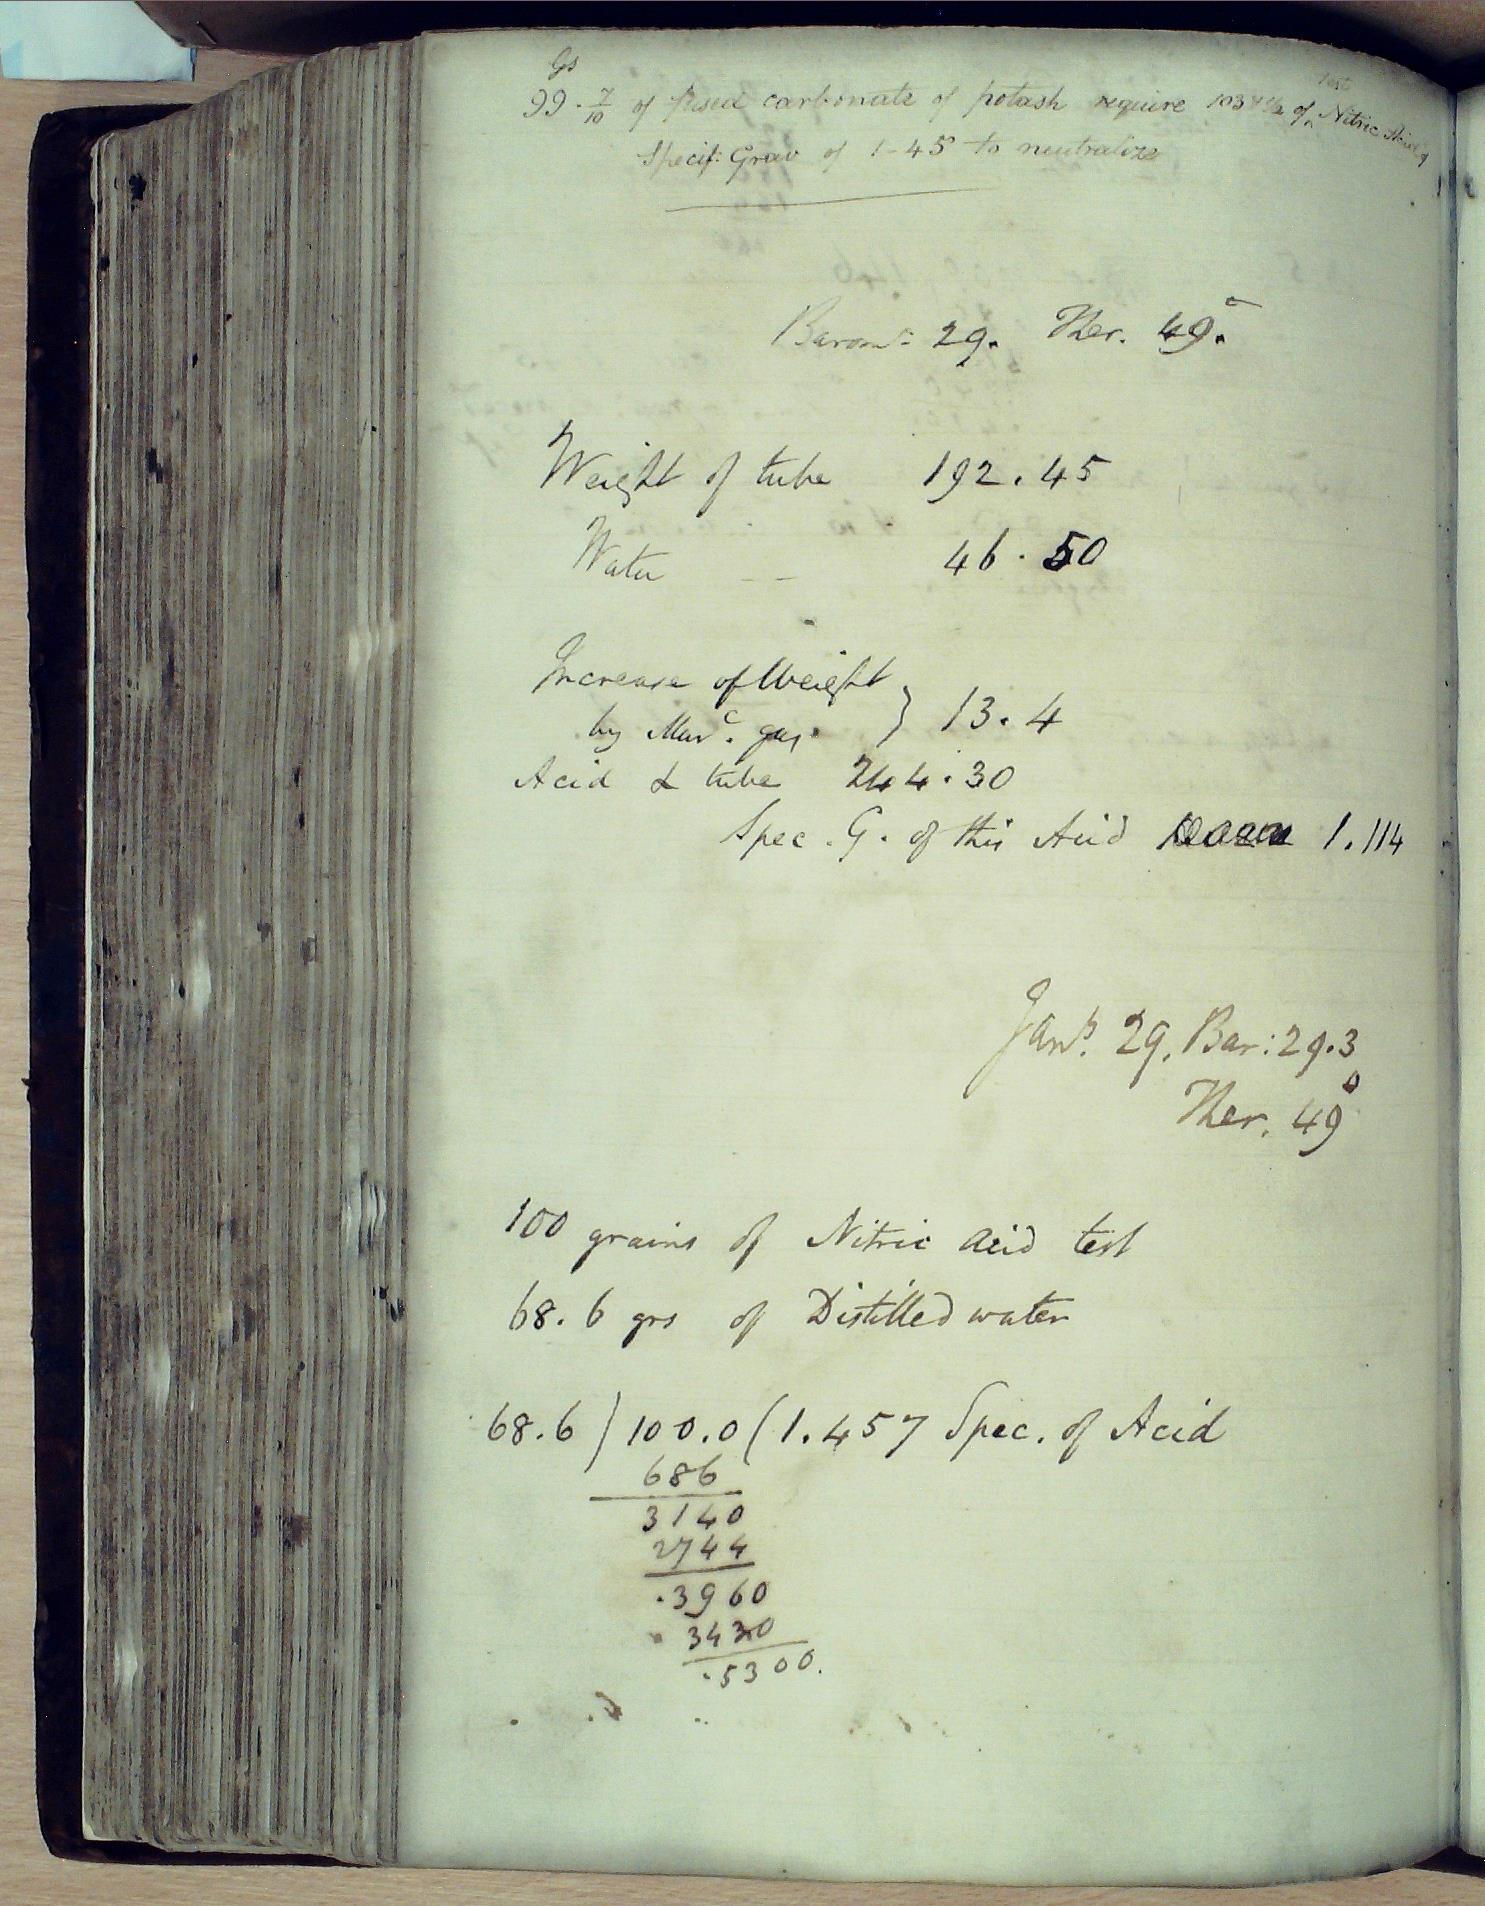 Gs
99. 7/10 of fused carbonate of potash require of Nitric Acid of
test
Specif: Grav of 1-45 to neutralize
Baromr: 29. Ther. 49.°
Weight of tube 192.45
Water -- 46.50
Increase of Weight
by Murc. gas. } 13.4
Acid & tube 244.30
Spec. G. of this Acid 1.114
Jany. 29. Bar: 29.3
Ther. 49°
100 grains of Nitric acid test
68.6 grs of Distilled water
68.6 ) 100.0 ( 1.457 Spec. of Acid
686
3140
2744
.3960
3430
.5300.